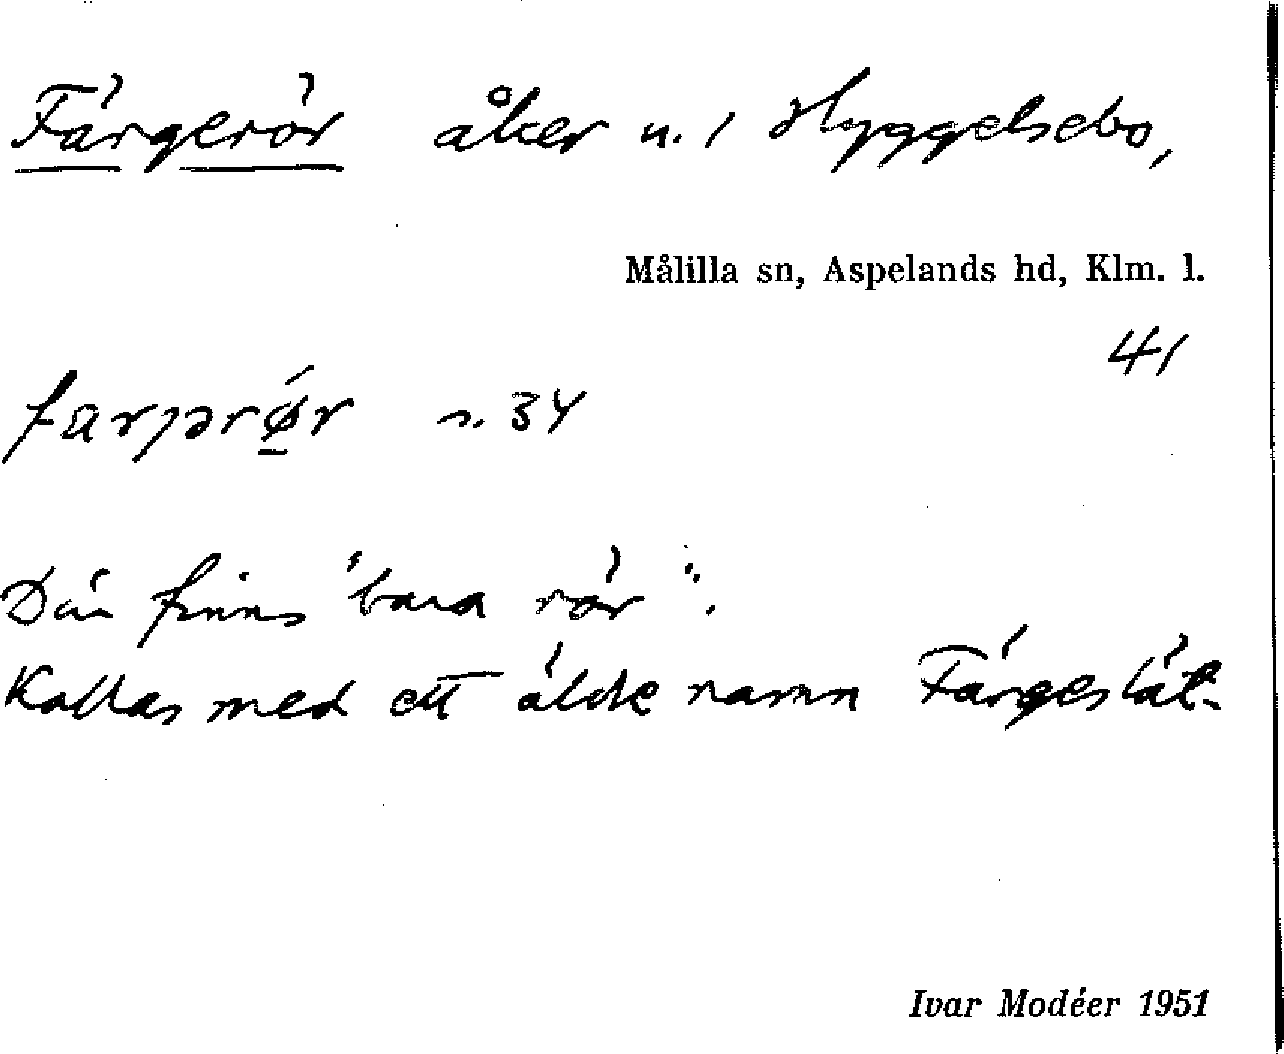 Färgerör åker u. 1 Hyggelsebo,
Målilla sn, Aspelands hd, Klm. l.
41
n. 34
Där finns "bara rör".
Kallas med ett äldre namn Färgeslät-
Ivar Modéer 1951